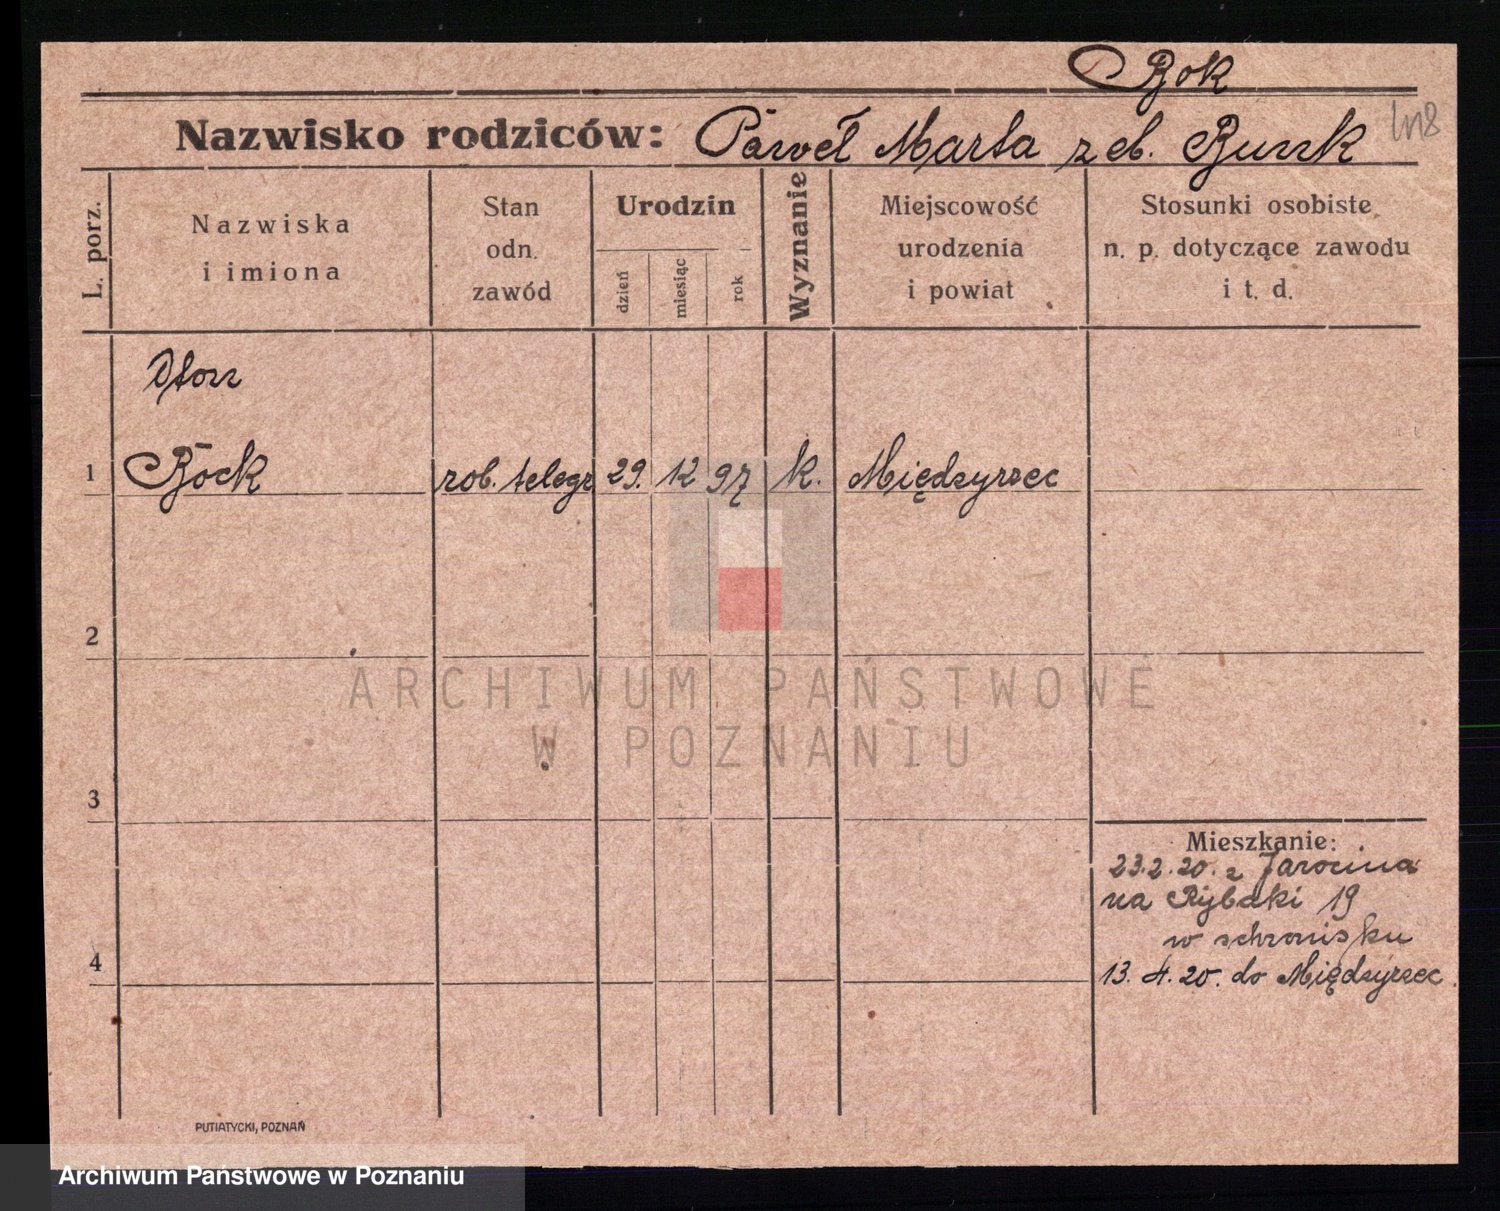 Bok
Nazwisko rodziców: Paweł Marta z eb. Buszk
L. porz.
Nazwiska
i imiona
Stan
odn.
zawód
Urodzin
dzień
miesiąc
rok
Wyznanie
Miejscowość
urodzenia
i powiat
Stosunki osobiste
n. p. dotyczące zawodu
i t. d.
1 Böck rob. telegr. 29. 12 97 k. Międzyrzec
2
ARCHIWUM PAŃSTWOWE
W POZNANIU
3
Mieszkanie:
23.2.20. z Jarocina
na Rybaki 19
w schronisku
4
13. 4. 20. do Międzyrzec.
PUTIATYCKI, POZNAŃ
Archiwum Państwowe w Poznaniu